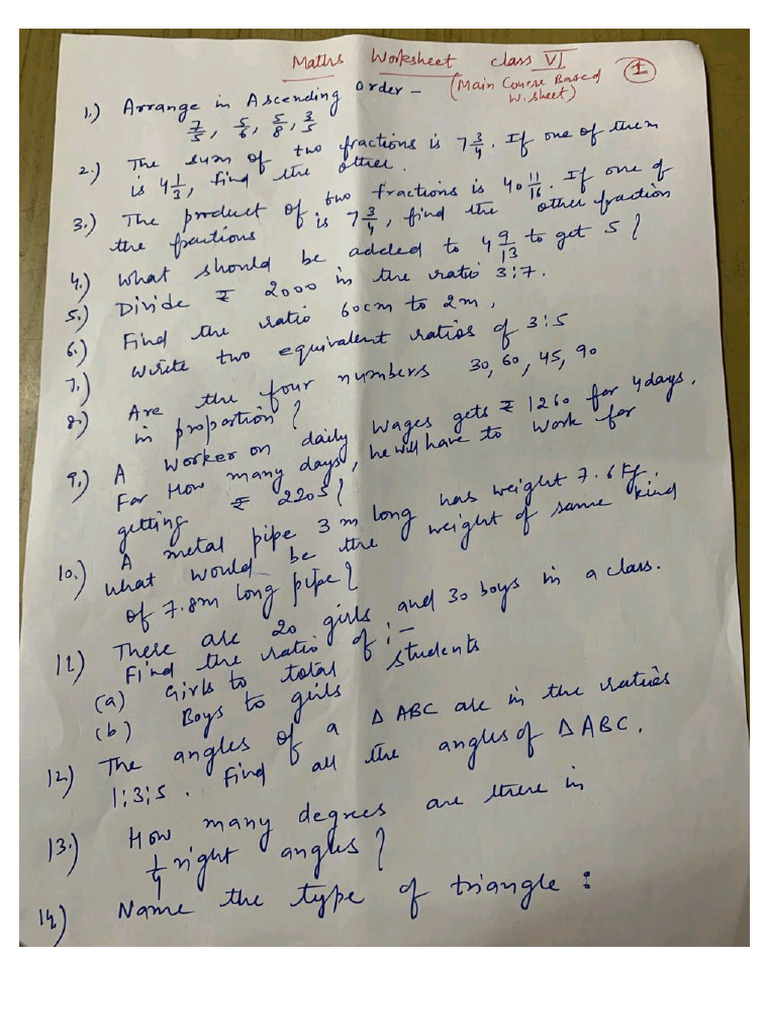 Maths Worksheet class VI
(Main Course Based W. sheet) 1
1.) Arrange in Ascending order –
7/5, 5/6, 5/8, 3/5
2.) The sum of two fractions is 7 3/4. If one of them
is 4 1/3, find the other.
3.) The product of two fractions is 40 11/16. If one of
the fractions is 7 3/4, find the other fraction
4.) What should be added to 4 9/13 to get 5?
5.) Divide ₹ 2000 in the ratio 3:7.
6.) Find the ratio 60cm to 2m,
7.) Write two equivalent ratios of 3:5
8.) Are the four numbers 30, 60, 45, 90
in proportion?
9.) A worker on daily wages gets ₹ 1260 for 4 days.
For How many days, he will have to work for
getting ₹ 2205?
10.) A metal pipe 3 m long has weight 7.6 Kg.
What would be the weight of same kind
of 7.8m long pipe?
11) There are 20 girls and 30 boys in a class.
Find the ratio of :–
(a) Girls to total students
(b) Boys to girls
12) The angles of a △ ABC are in the ratios
1:3:5. Find all the angles of △ ABC.
13.) How many degrees are there in
1/4 right angles?
14.) Name the type of triangle :